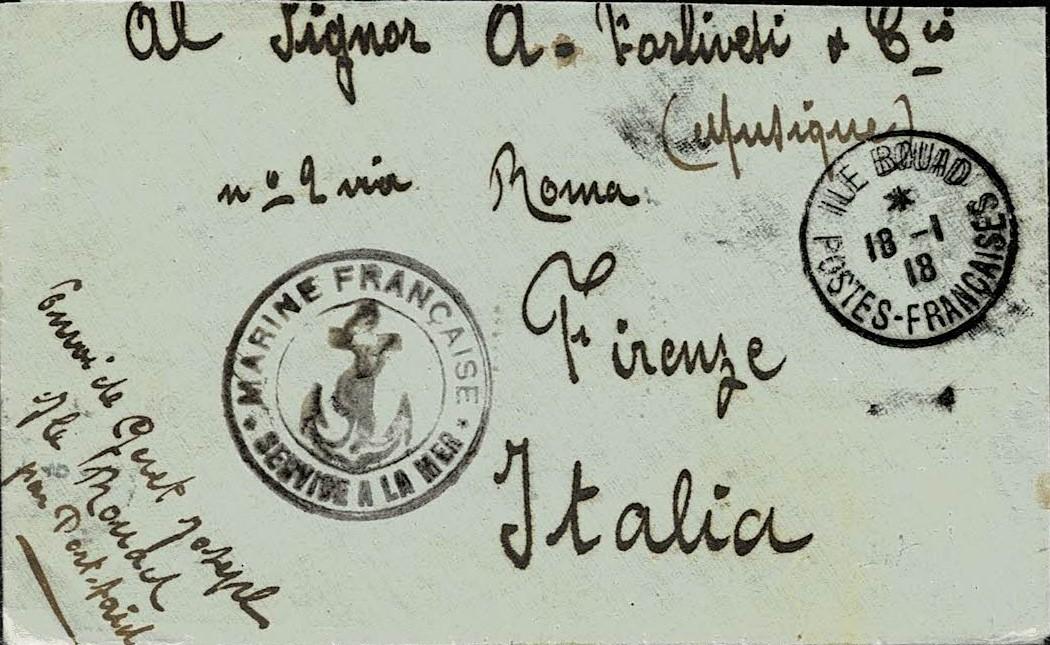 Al Signor A. Forlivesi & Cie
(Musique)
nº 2 via Roma
Firenze
Italia
ILE ROUAD
*
18 -1
18
POSTES-FRANÇAISES
MARINE FRANÇAISE
* SERVICE A LA MER *
Envoi de Joseph
Ile Rouad
par Port-Saïd